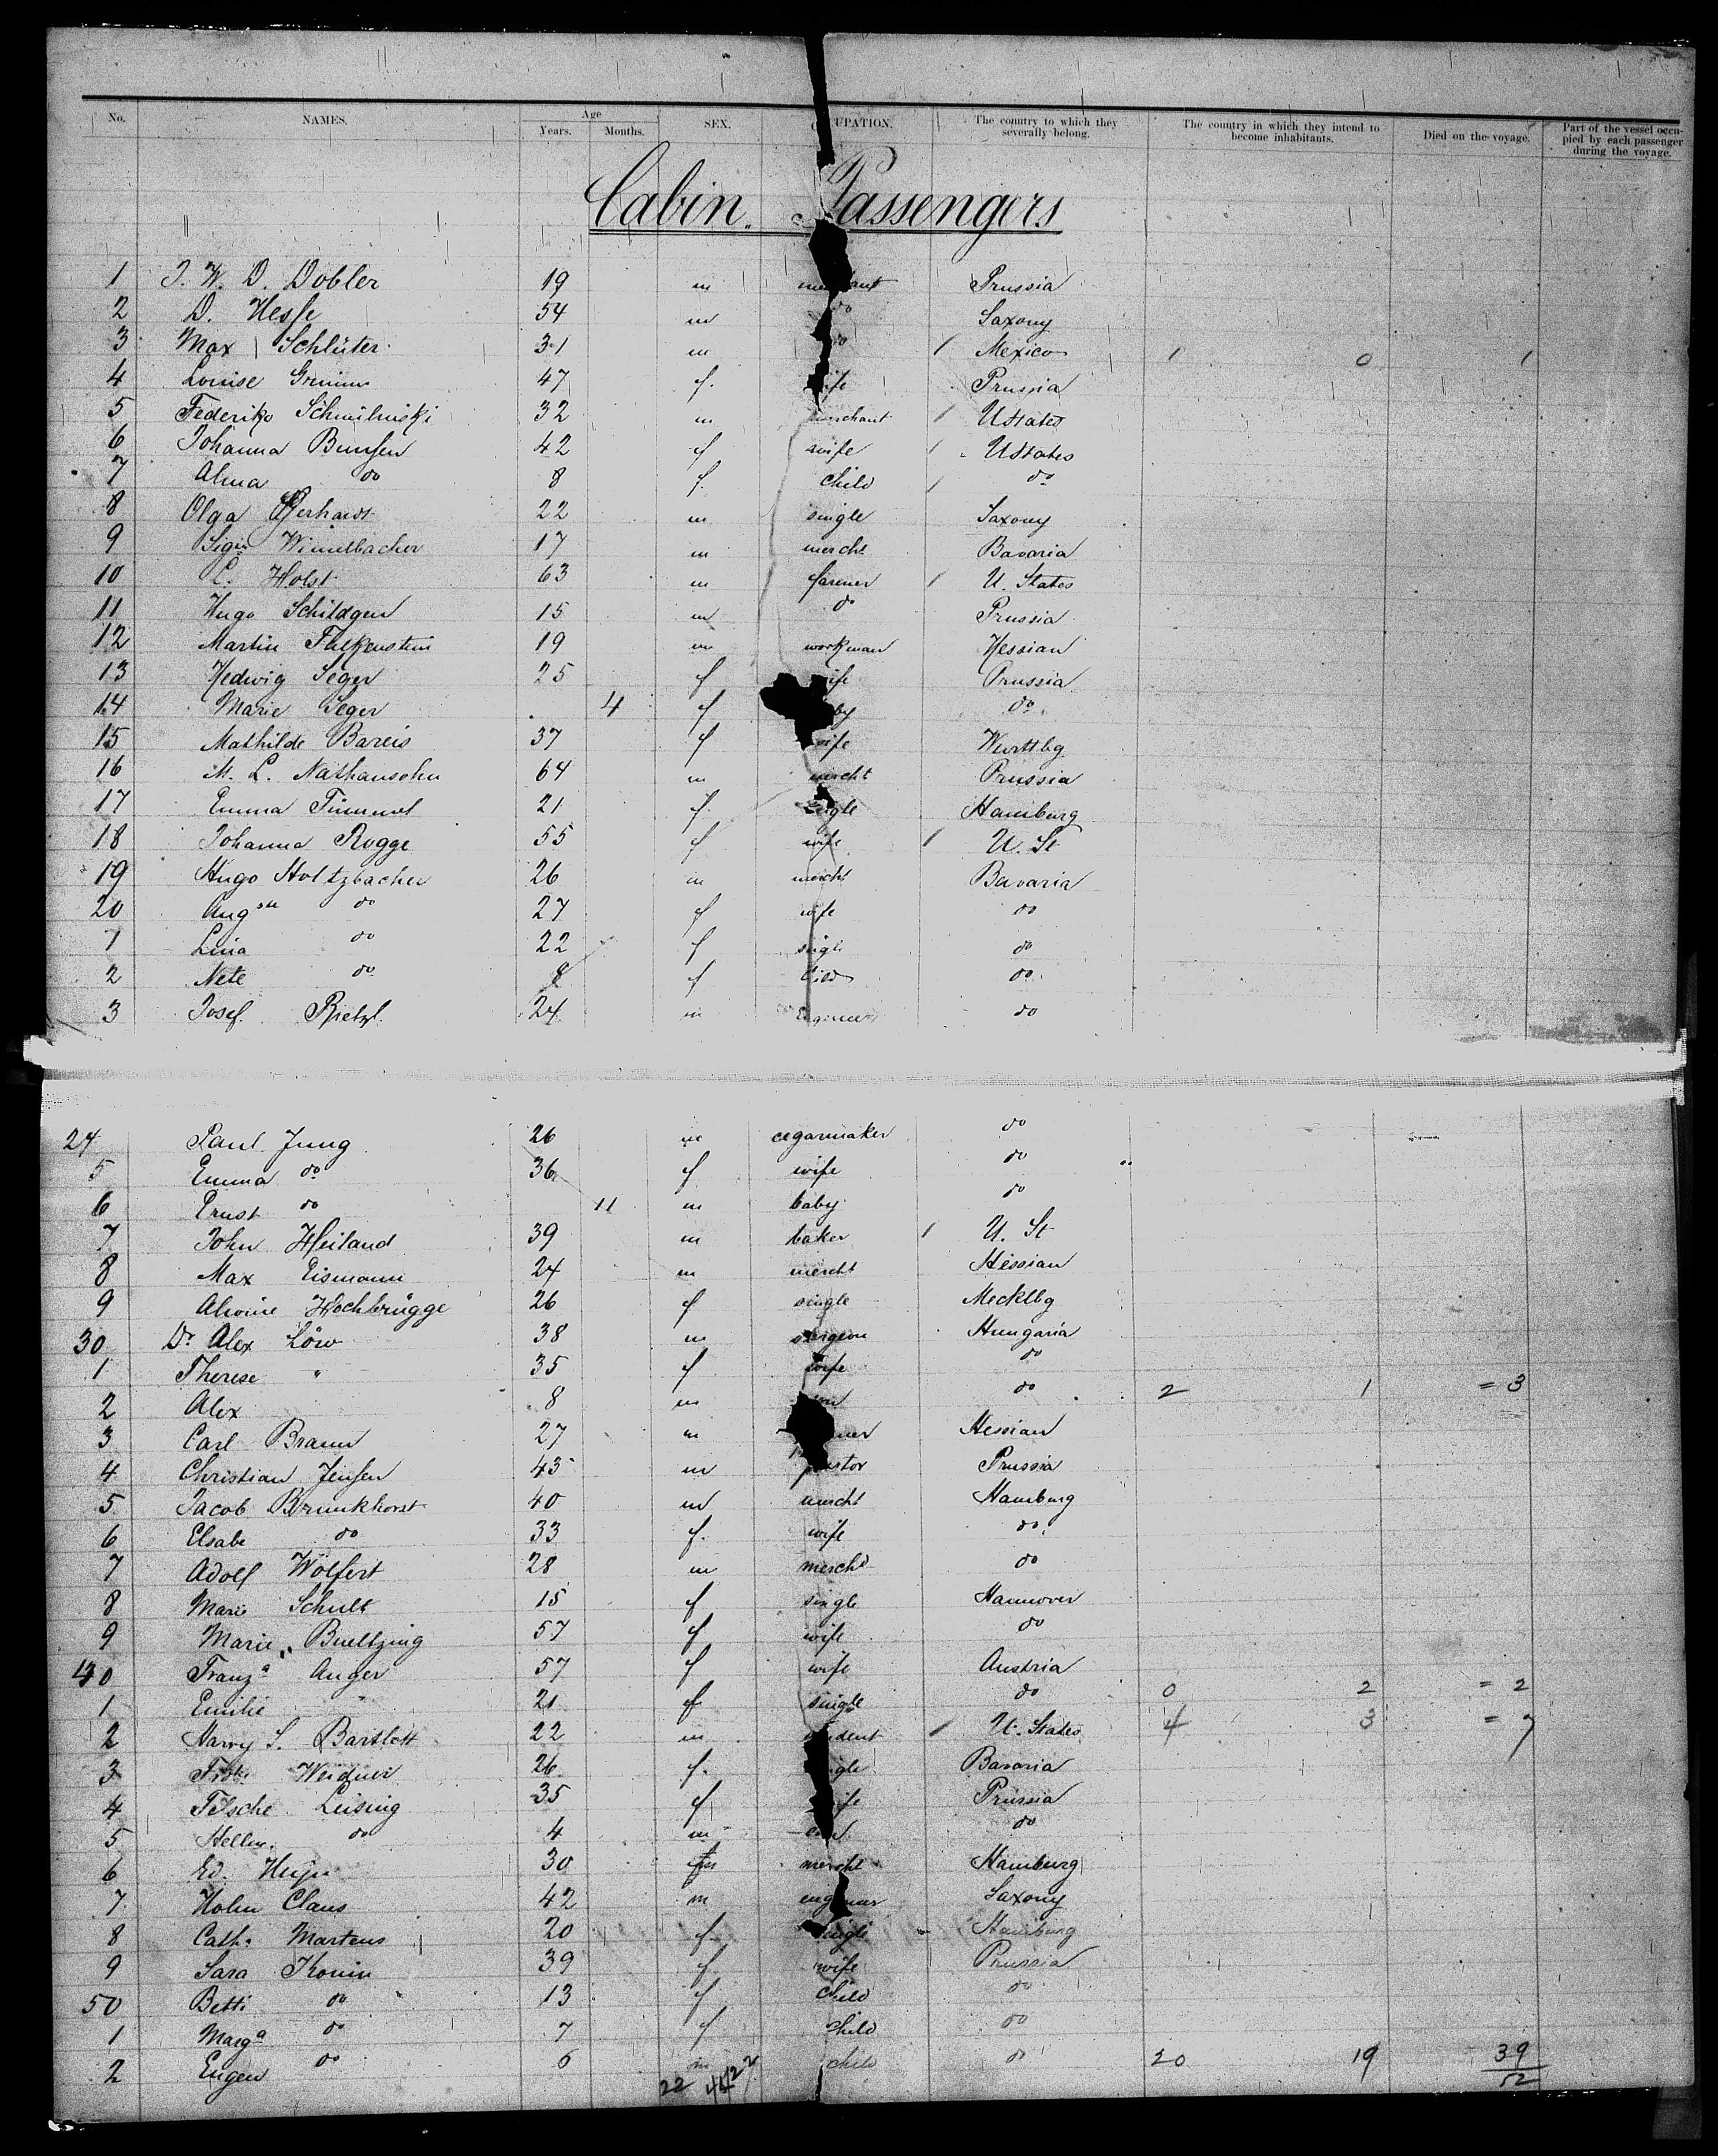 No. NAMES. Age Years. Months. SEX. UPATION. The country to which they severally belong. The country in which they intend to become inhabitants. Died on the voyage. Part of the vessel occupied by each passenger during the voyage.
Cabin Passengers
1 J. W. D. Dobler 19 m Prussia
2 D. Hesse 54 m do Saxony
3 Max Schlüter 31 m do 1 Mexico 1 0 1
4 Louise Grimm 47 f. wife Prussia
5 Federiko Schmilinski 32 m merchant 1 UStates
6 Johanna Bunsen 42 f wife 1 UStates
7 Alma do 8 f. child 1 do
8 Olga Gerhardt 22 m single Saxony
9 17 m mercht Bavaria
10 Holst 63 m farmer 1 U. States
11 Hugo Schildgen 15 m do Prussia
12 Martin Falkenstein 19 m workman Hessian
13 Hedwig Seger 25 f wife Prussia
14 Marie Seger 4 f baby do
15 Mathilde Bareis 37 f wife Wurttbg
16 M. L. Nathansohn 64 m mercht Prussia
17 Emma Timmel 21 f. single Hamburg
18 Johanna Rogge 55 f wife 1 U. St
19 Hugo Holtzbacher 26 m mercht Bavaria
20 Augste do 27 f wife do
1 Lina do 22 f single do
2 Nete do 8 f child do
3 Josef 24 m do
24 Paul Jung 26 m cegarmaker do
5 Emma do 36 f wife do
6 Ernst do 11 m baby do
7 John Heiland 39 m baker 1 U. St
8 Max Eismann 24 m mercht Hessian
9 Alwine Hochbrügge 26 f single Mecklbg
30 Dr Alex Löw 38 m surgeon Hungaria
1 Therese " 35 f wife do
2 Alex 8 m do 2 1 = 3
3 Carl Braun 27 m Hessian
4 Christian Jensen 43 m pastor Prussia
5 Jacob Brunkhorst 40 m mercht Hamburg
6 Elsabe do 33 f. wife do
7 Adolf Wölfert 28 m mercht do
8 Marie Schult 15 f single Hannover
9 Marie Bueltzing 57 f wife do
40 Franza Auger 57 f wife Austria
1 Emilie " 21 f single do 0 2 = 2
2 Harry S. Bartlett 22 m student 1 U. States 4 3 = 7
3 26 f. single Bavaria
4 Leising 35 f wife Prussia
5 do 4 m do
6 Ed. 30 m mercht Hamburg
7 Holm Claus 42 m engineer Saxony
8 Cath. Martens 20 f. single Hamburg
9 Sara Konin 39 f wife Prussia
50 Betti do 13 f child do
1 Marga do 7 f child do
2 Eugen do 6 m child do 20 19 39
22 52